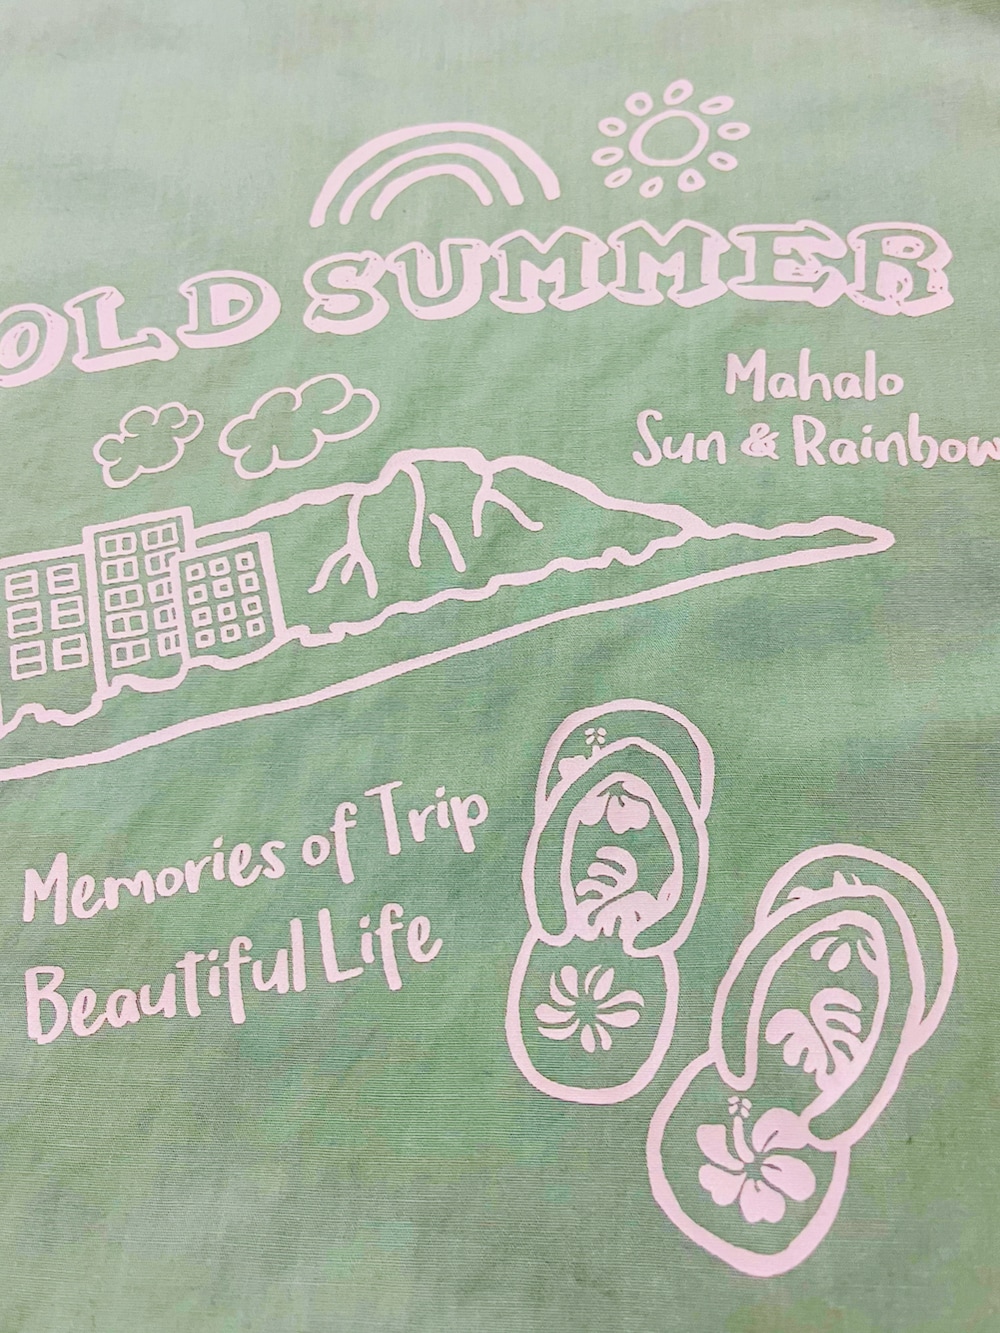 OLD SUMMER
Mahalo
Sun & Rainbow
Memories of Trip
Beautiful Life